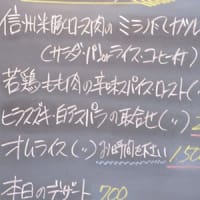 信州米豚ロース肉のミラノ風カツレツ
(サラダ・パンorライス・コーヒー付)
若鶏もも肉の辛味スパイス・ロースト(〃)
ヒラスズキ・白アスパラの取合せ(〃)
オムライス(〃)お時間を下さい 150
本日のデザート 700